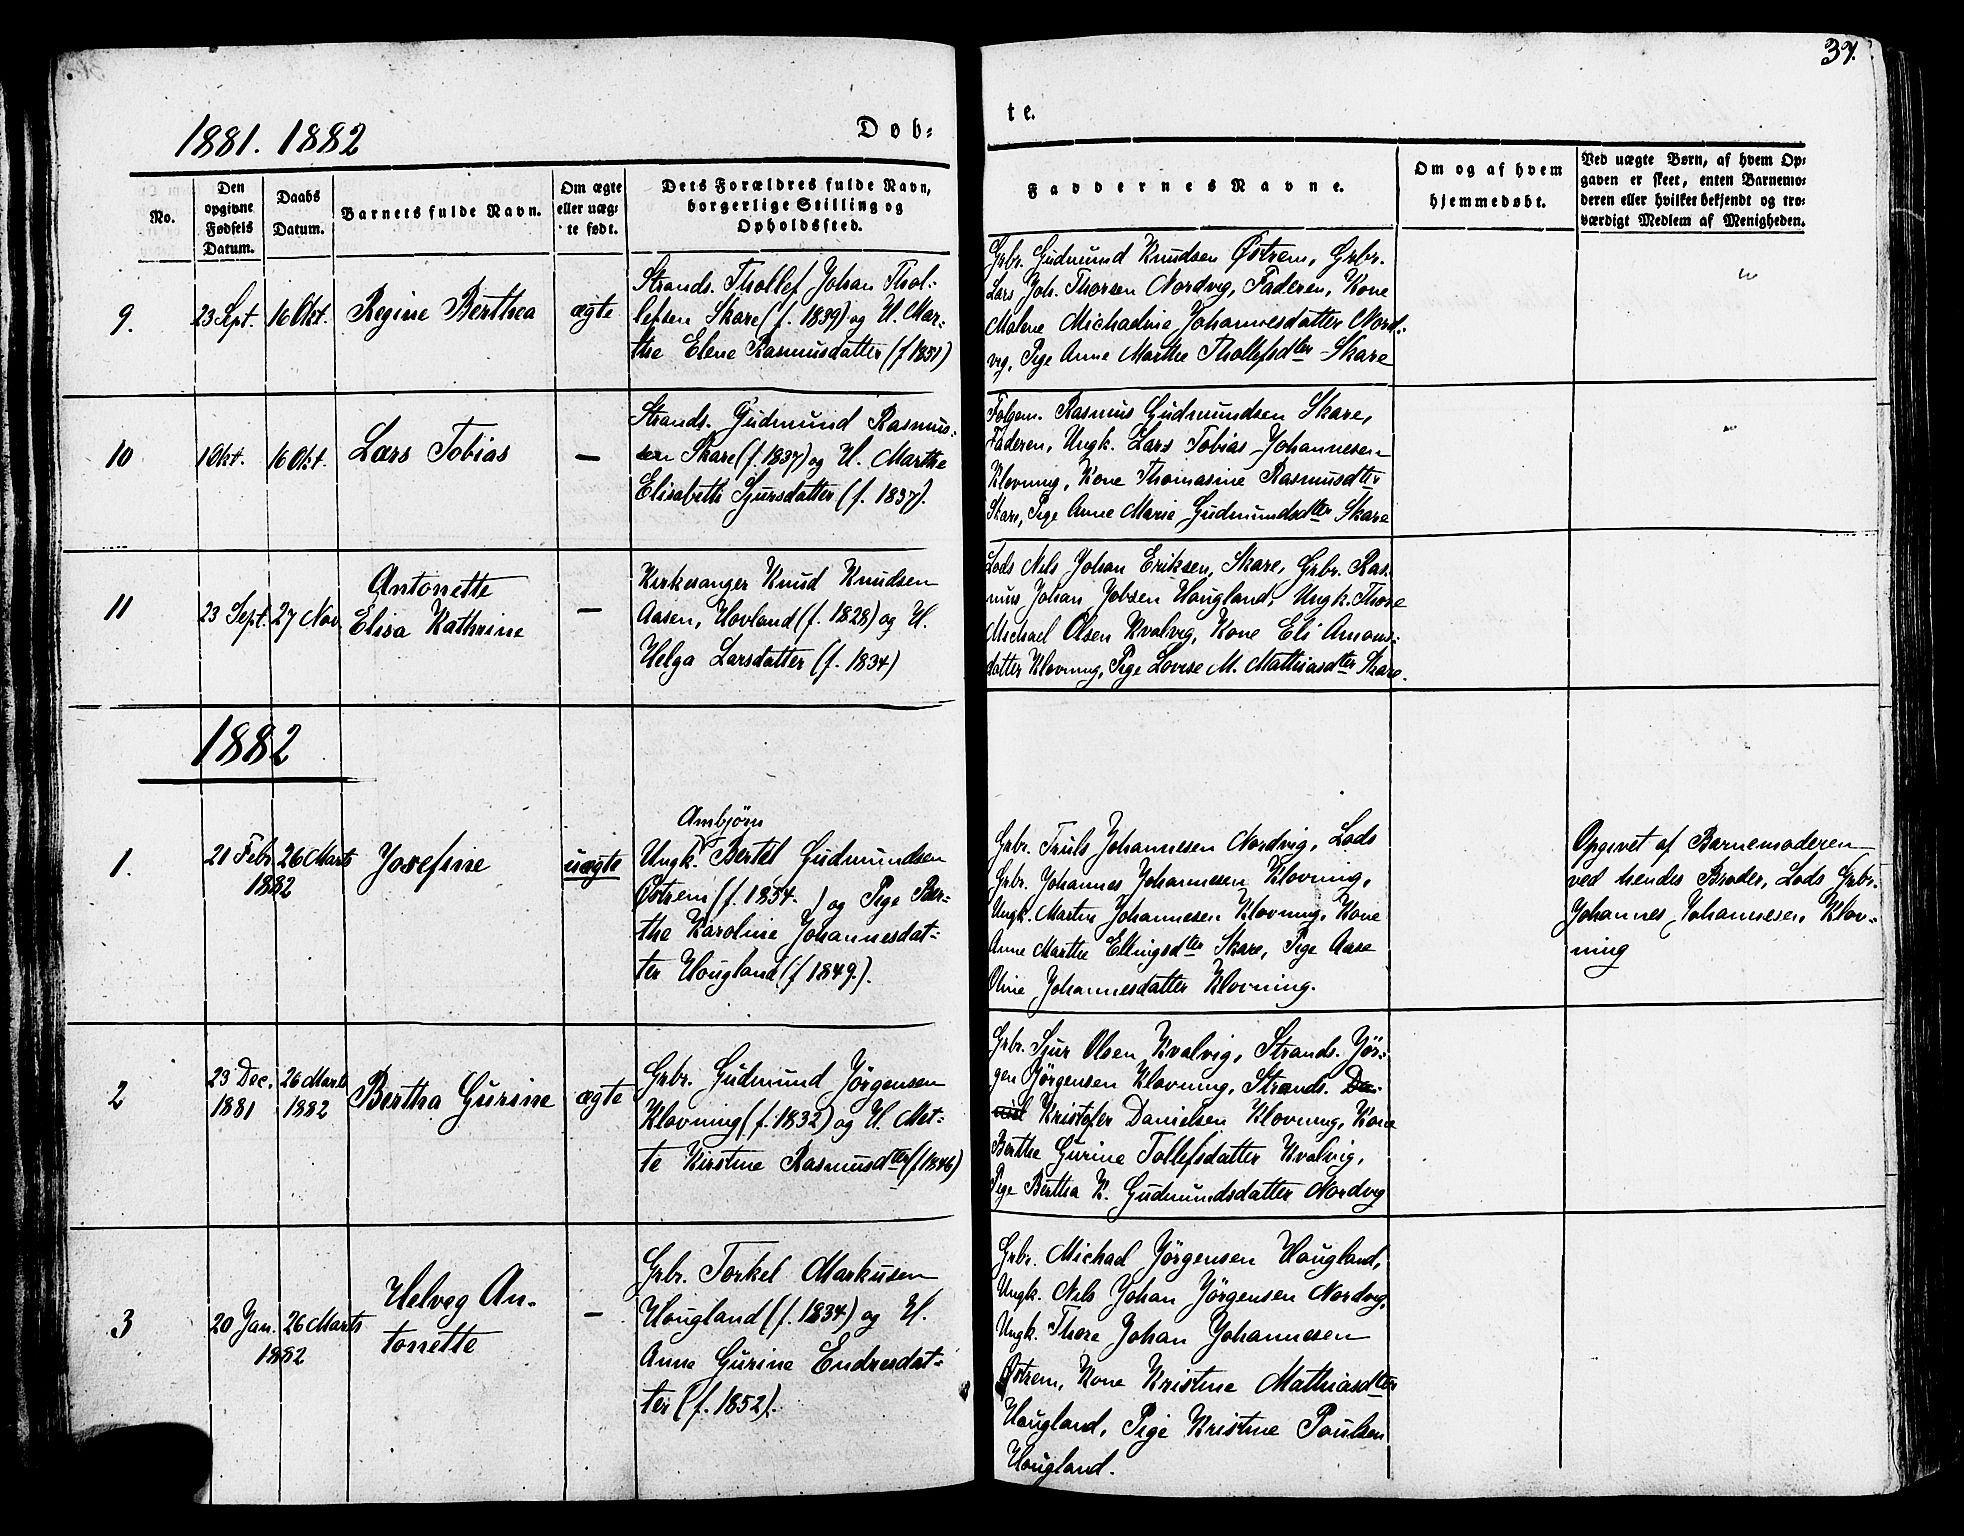 37.
1881. 1882
Døb-
te.
No.
Den
opgivne
Fødsels
Datum.
Daabs
Datum.
Barnets fulde Navn.
Om ægte
eller uæg-
te født.
Dets Forældres fulde Navn,
borgerlige Stilling og
Opholdssted.
Faddernes Navne.
Om og af hvem
hjemmedøbt.
Ved uægte Børn, af hvem Op-
gaven er skeet, enten Barnemo-
deren eller hvilket bekjendt og tro-
værdigt Medlem af Menigheden.
9.
23 Sept.
16 Okt.
Regine Berthea
ægte
Strands. Thollef Johan Thol-
lefsen Skare (f. 1839) og H. Mar-
the Elene Rasmusdatter (f 1851)
Grbr. Gudmund Knudsen Østrem, Grbr.
Lars Joh. Thorsen Nordvig, Faderen, Kone
Malene Michaeline Johannesdatter Nord-
vig, Pige Anne Marthe Thollefsdter Skare
"
10
1 Okt.
16 Okt.
Lars Tobias
—
Strands. Gudmund Rasmus-
sen Skare (f. 1837) og H. Marthe
Elisabeth Sjursdatter (f. 1837).
Folgem. Rasmus Gudmundsen Skare,
Faderen, Ungk. Lars Tobias Johannesen
Klovning, Kone Thomasine Rasmusdter
Skare, Pige Anne Marie Gudmundsdter Skare
"
11
23 Sept.
27 Nov.
Antonette
Elisa Kathrine
—
Kirkesanger Knud Knudsen
Aasen, Hovland (f. 1828) og H.
Helga Larsdatter (f. 1834)
Lods Nils Johan Eriksen, Skare, Grbr. Ras-
mus Johan Jobsen Hougland, Ungk. Thore
Michael Olsen Kvalvig, Kone Eli Amons-
datter Klovning, Pige Lovise M. Mathiasdter Skare.
1882
1.
21 Febr.
26 Marts
1882
Josefine
uægte
Ambjørn
Ungk. Bertel Gudmundsen
Østrem (f. 1854. ) og Pige Ber-
the Karoline Johannesdat-
ter Hougland (f 1849.).
Grbr. Truls Johannesen Nordvig, Lods
Grbr. Johannes Johannesen Klovning,
Ungk. Martin Johannesen Klovning, Kone
Anne Marthe Ellingsdter Skare, Pige Aase
Oline Johannesdatter Klovning.
Opgivet af Barnemoderen
ved hendes Broder, Lods Grbr.
Johannes Johannesen, Klov-
ning
2
23 Dec.
1881
26 Marts
1882
Bertha Gurine
ægte
Grbr. Gudmund Jørgensen
Klovning (f. 1832) og H. Met-
te Kirstine Rasmusdter (f 1846)
Grbr. Sjur Olsen Kvalvig, Strands. Jør-
gen Jørgensen Klovning, Strands. Da-
niel Kristofer Danielsen Klovning, Kone
Berthe Gurine Tollefsdatter Kvalvig,
Pige Bertha K. Gudmundsdatter Nordvig
3
20 Jan.
26 Marts
1882
Helveg An-
tonette
—
Grbr. Torkel Markusen
Hougland (f. 1834) og H.
Anne Gurine Endresdat-
ter (f. 1852).
Grbr. Michael Jørgensen Hougland,
Ungk. Nils Johan Jørgensen Nordvig,
Ungk. Thore Johan Johannesen
Østrem, Kone Kristine Mathiasdter
Hougland, Pige Kristine Poulsen
Hougland.